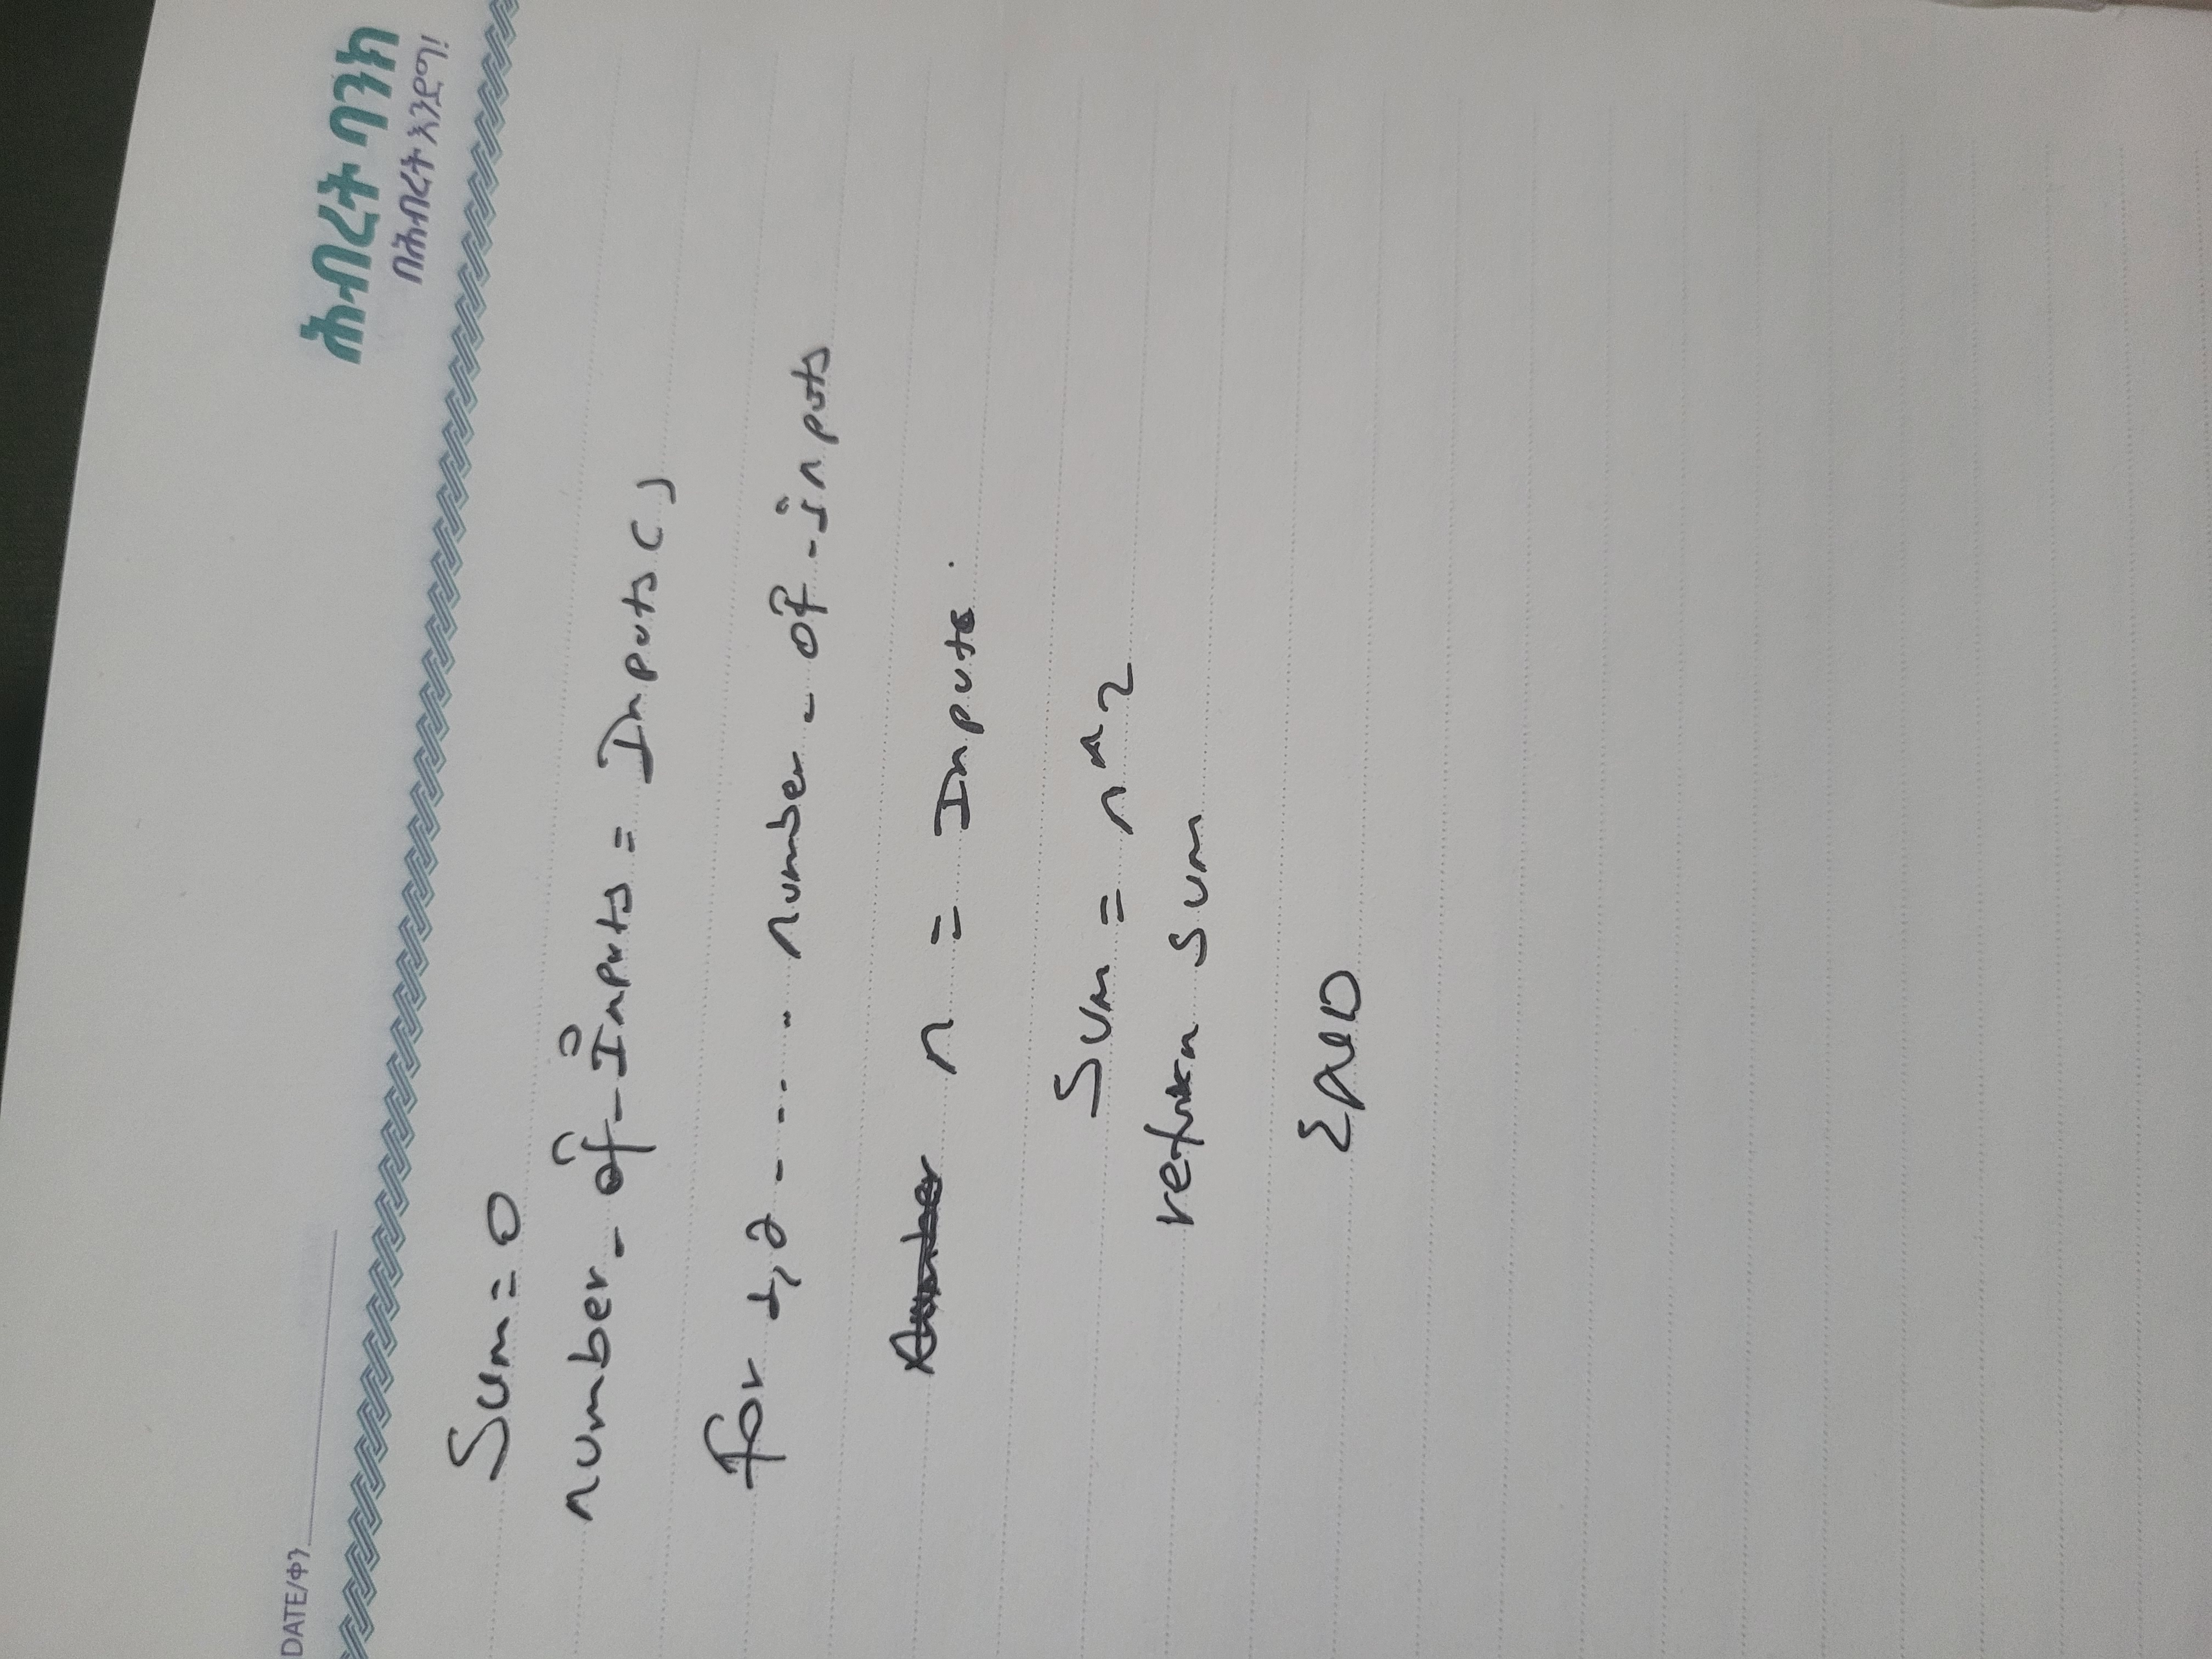 DATE/ቀን
ሕብረት ባንክ
በሕብረት እንደግ!
Sum = 0
number_of_Inputs = Inputs()
for 1,2 - . . . . number_of_inputs
n = Inputs
Sum = n^2
return sum
END